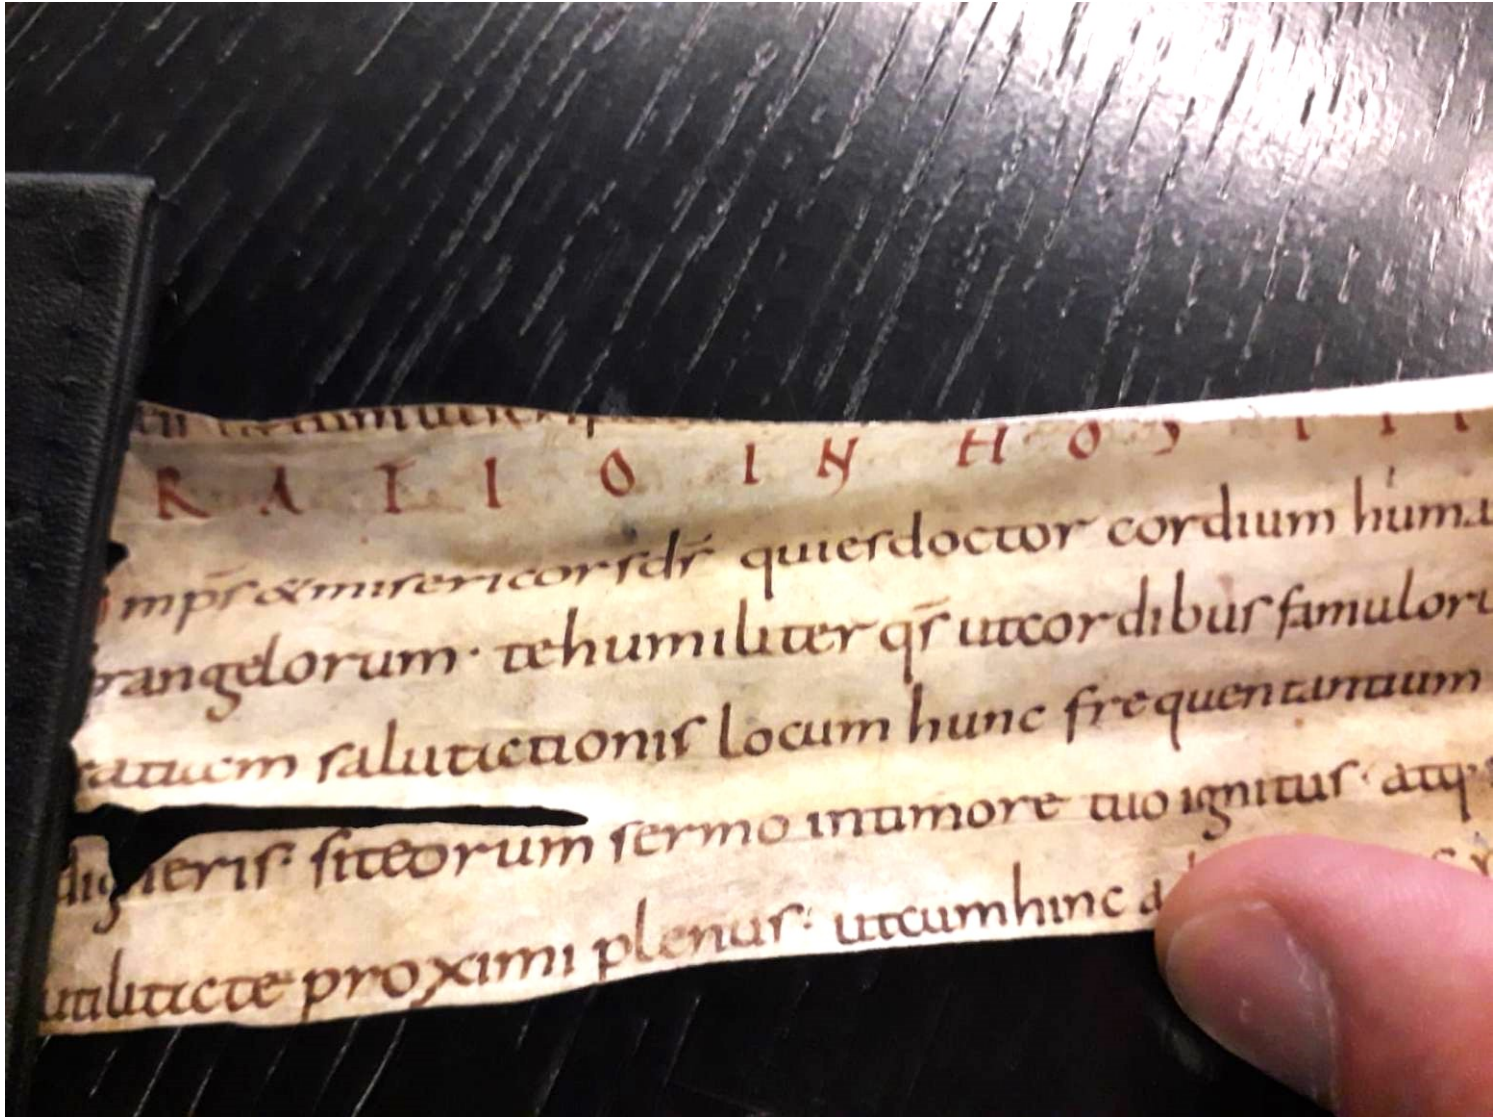 RATIO IN HOSPITI
omps & misericors ds quies doctor cordium huma
rangelorum · te humiliter qs ut cordibus famuloru
ratiam salutationis locum hunc frequentantium
digneris· sit eorum sermo in timore tuo ignitus· atq·
utilitate proximi plenus· ut cum hinc